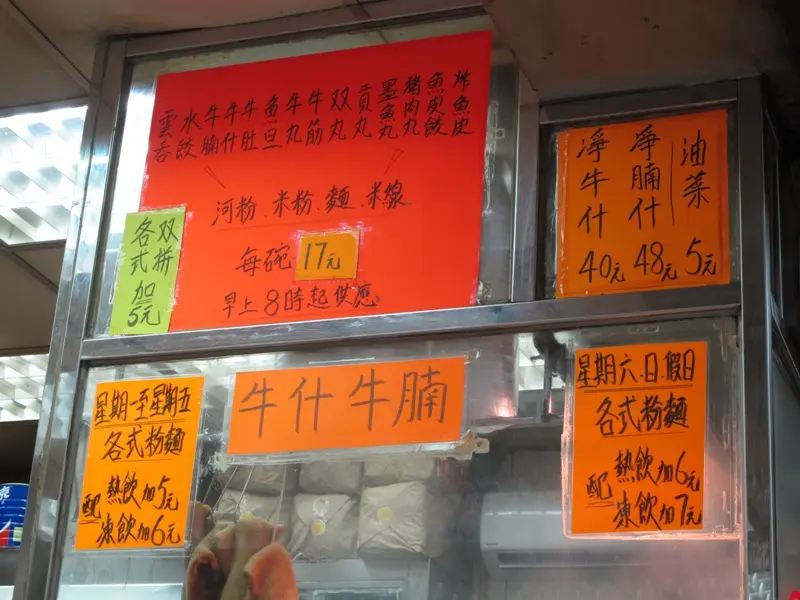 雲吞
水餃
牛腩
牛什
牛肚
魚旦
牛丸
牛筋
双丸
貢丸
墨魚丸
猪肉丸
魚皮餃
炸魚皮
河粉.米粉.麵.米線
每碗 17元
早上8時起供應
各式
双拼
加
5元
淨牛什 40元
淨腩什 48元
油菜 5元
星期一至星期五
各式粉麵
配 熱飲加5元
凍飲加6元
牛什牛腩
星期六.日.假日
各式粉麵
配 熱飲加6元
凍飲加7元